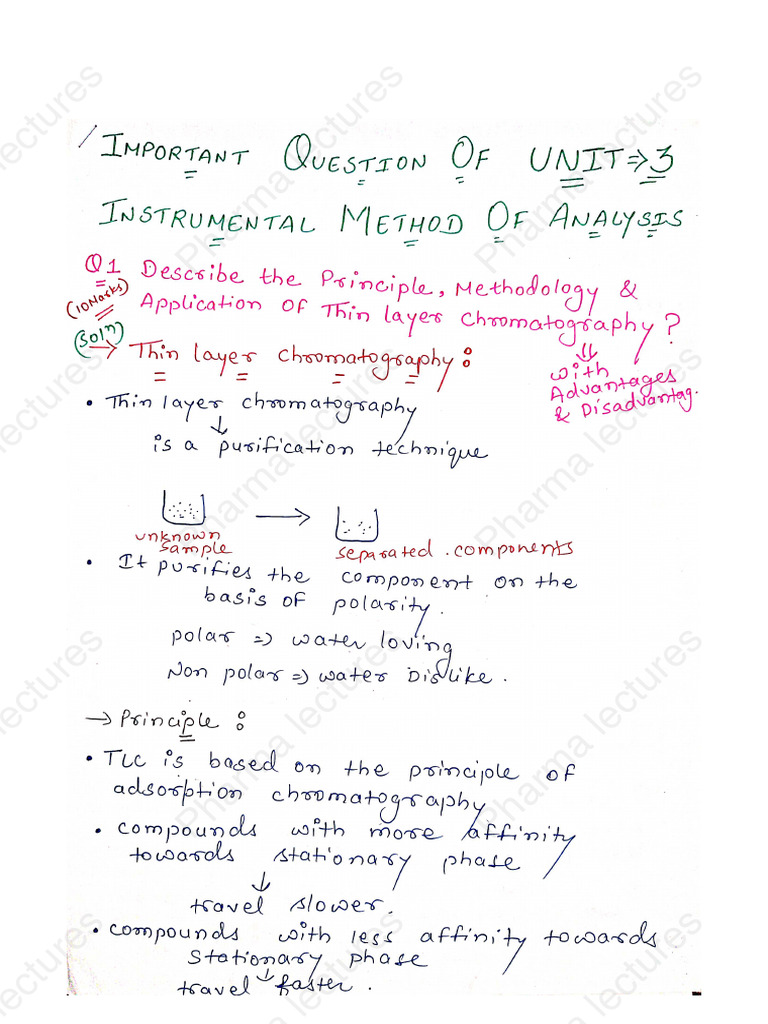 IMPORTANT QUESTION OF UNIT ⇒ 3
INSTRUMENTAL METHOD OF ANALYSIS
Q1 Describe the Principle, Methodology &
(10 Marks) Application Of Thin layer chromatography ?
⇓
with
Advantages
& Disadvantag.
(Solⁿ)
→ Thin layer chromatography :
• Thin layer chromatography
↓
is a purification technique
→
unknown
sample
separated components
• It purifies the component on the
basis of polarity.
polar ⇒ water loving
Non polar ⇒ water Dislike.
→ Principle :
• TLC is based on the principle of
adsorption chromatography
• compounds with more affinity
towards stationary phase
↓
travel slower.
• compounds with less affinity towards
stationary phase
↓
travel faster.
Pharma lectures